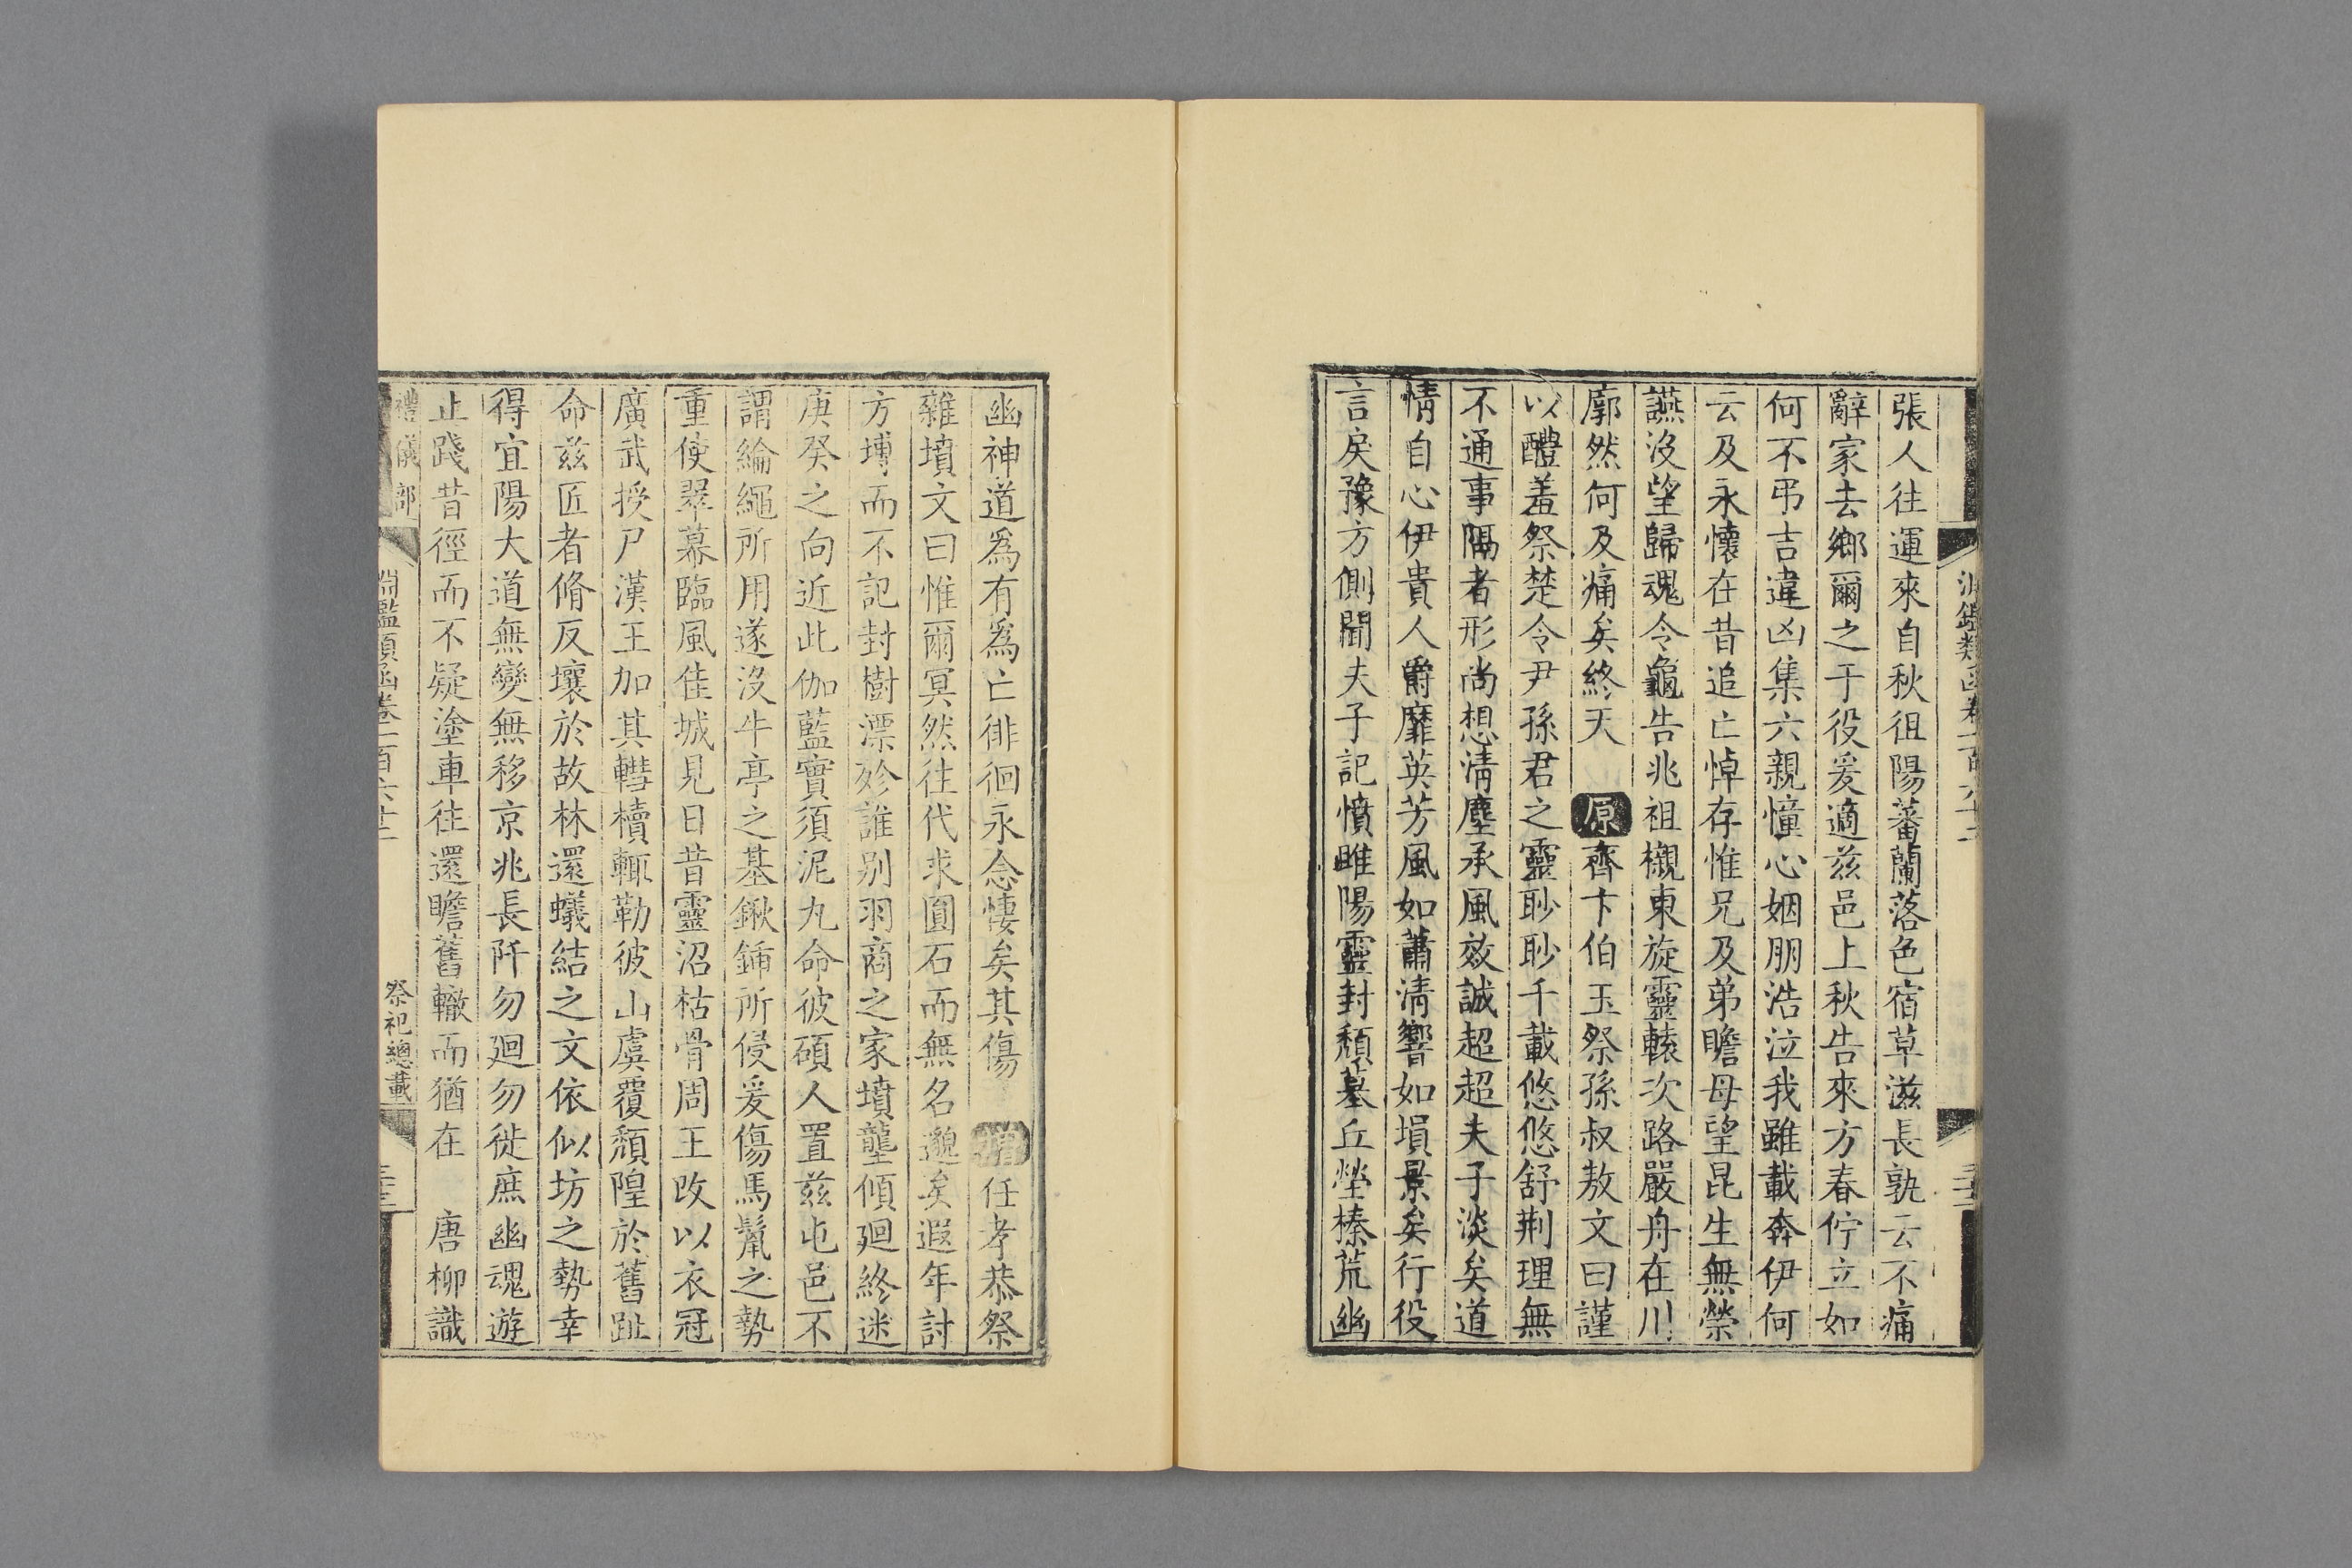 張人往運來自秋徂陽蕃蘭落色宿草滋長孰云不痛
辭家去鄉爾之于役爰適茲邑上秋告來方春佇立如
何不弔吉違凶集六親憧心姻朋浩泣我雖載奔伊何
云及永懷在昔追亡悼存惟兄及弟瞻母望昆生無榮
讌沒望歸魂令龜告兆祖櫬東旋靈轅次路嚴舟在川
廓然何及痛矣終天 原齊卞伯玉祭孫叔敖文曰謹
以醴羞祭楚令尹孫君之靈眇眇千載悠悠舒荆理無
不通事隔者形尚想清塵承風效誠超超夫子淡矣道
情自心伊貴人爵靡英芳風如蕭清響如塤景矣行役
言戾豫方側聞夫子記憤雎陽靈封頹墓丘塋榛荒幽
幽神道爲有爲亡徘徊永念悽矣其傷 增任孝恭祭
雜墳文曰惟爾冥然往代求圓石而無名邈矣遐年討
方塼而不記封樹漂殄誰别羽商之家墳壟傾迴終迷
庚癸之向近此伽藍實須泥九命彼碩人置茲屯邑不
謂綸繩所用遂沒牛亭之基鍬鍤所侵爰傷馬鬣之勢
重使翠幕臨風佳城見日昔靈沼枯骨周王改以衣冠
廣武授尸漢王加其轊櫝輒勒彼山虞覆頹隍於舊趾
命茲匠者脩反壤於故林還蟻結之文依似坊之勢幸
得宜陽大道無變無移京兆長阡勿迴勿徙庶幽魂遊
止踐昔徑而不疑塗車往還瞻舊轍而猶在 唐柳識
禮儀部 淵鑑類函卷一百六十二 祭祀總載